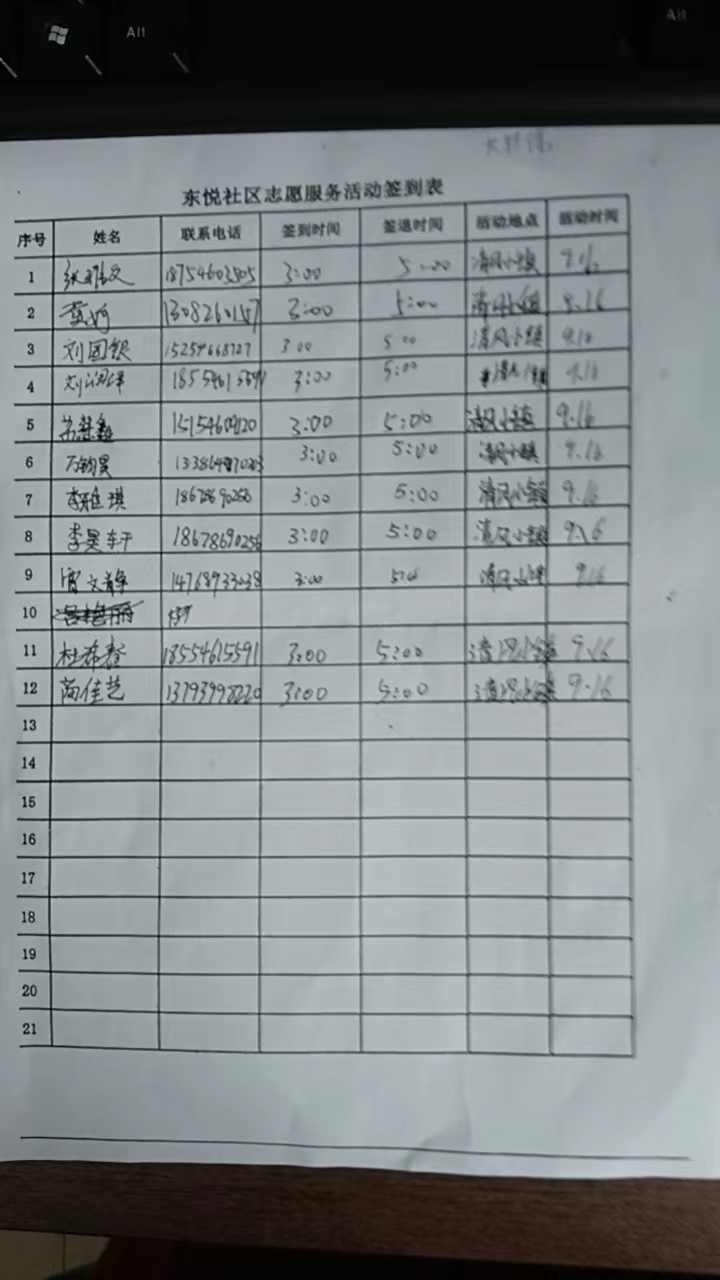 Alt
Alt
东悦社区志愿服务活动签到表
序号 姓名 联系电话 签到时间 签退时间 活动地点 活动时间
1 18754603505 3:00 5:00 清风小镇 9.16
2 3:00 5:00 清风小镇 9.16
3 刘国银 15254668727 3:00 5:00 清风小镇 9.16
4 3:00 5:00 清风小镇 9.16
5 3:00 5:00 清风小镇 9.16
6 3:00 5:00 清风小镇 9.16
7 李雅琪 18678690256 3:00 5:00 清风小镇 9.16
8 李昊轩 18678690256 3:00 5:00 清风小镇 9.16
9 文静 14768933038 3:00 5:00 清风小镇 9.16
10
11 杜希春 18554615591 3:00 5:00 清风小镇 9.16
12 尚佳艺 13793998220 3:00 5:00 清风小镇 9.16
13
14
15
16
17
18
19
20
21